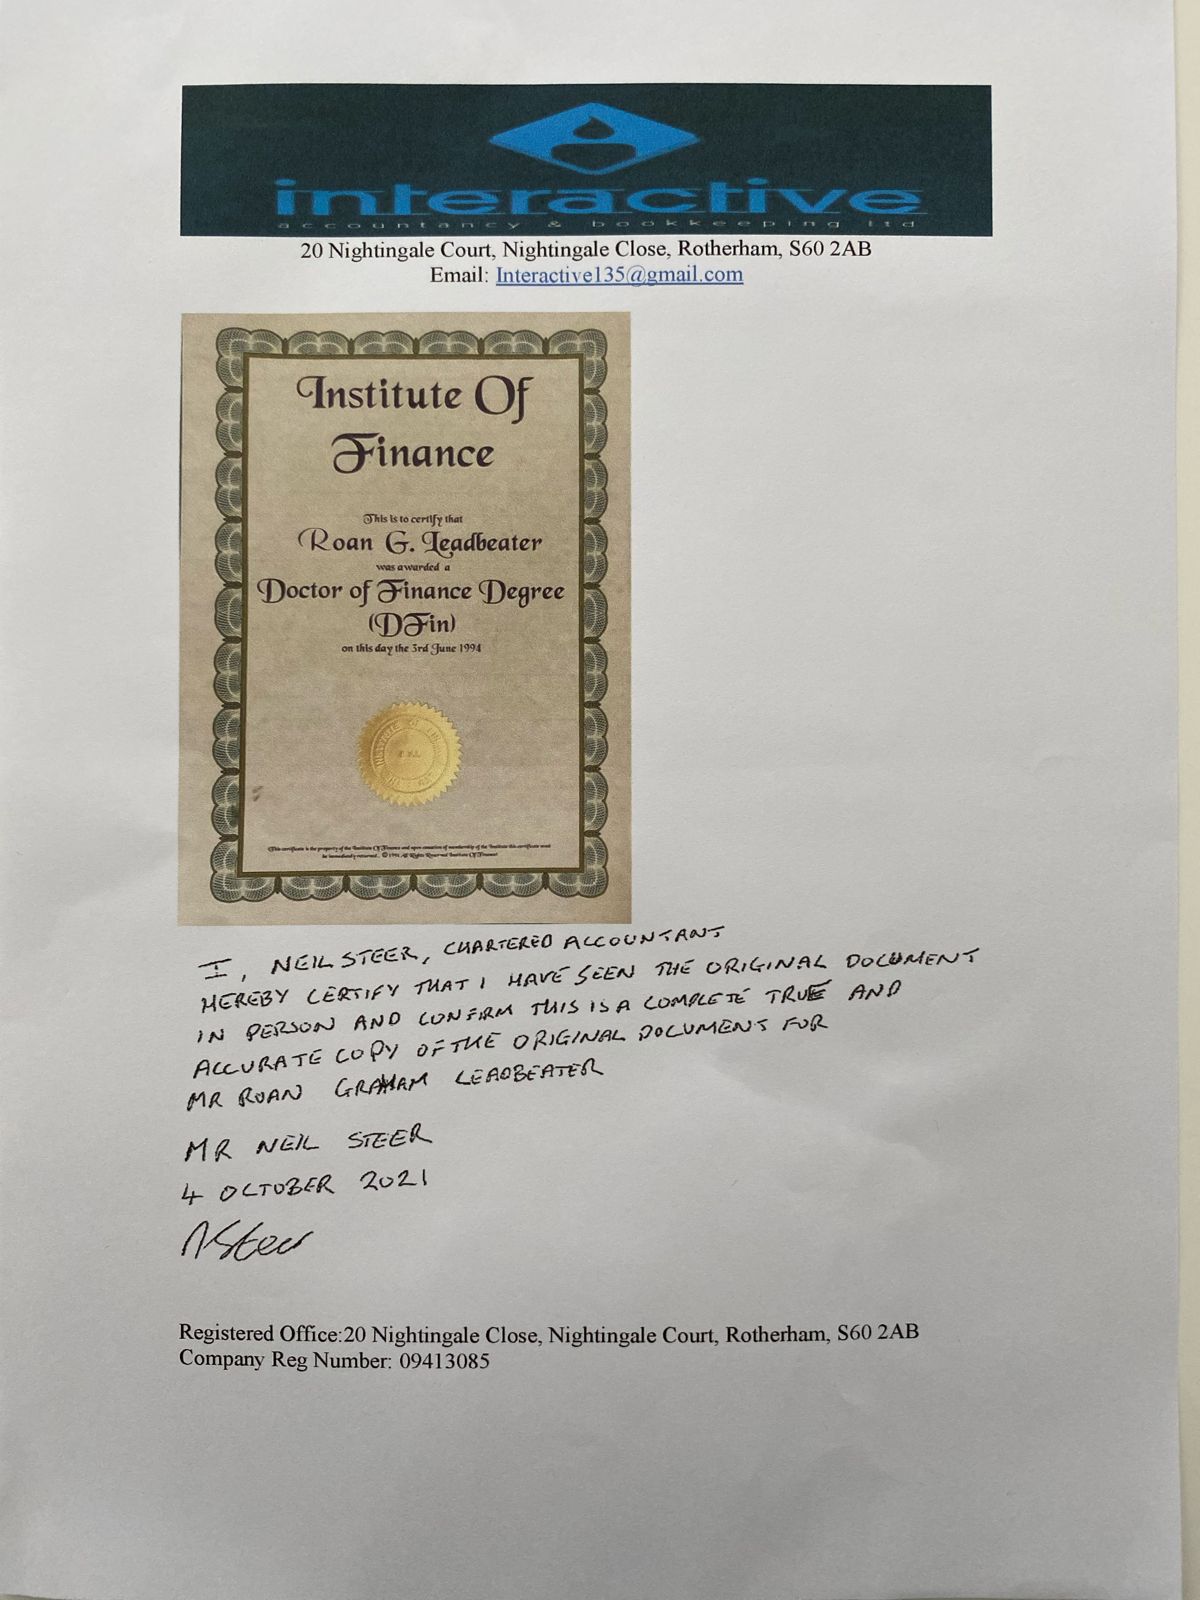 interactive
accountancy & bookkeeping ltd
20 Nightingale Court, Nightingale Close, Rotherham, S60 2AB
Email: Interactive135@gmail.com
Institute Of
Finance
This is to certify that
Roan G. Leadbeater
was awarded a
Doctor of Finance Degree
(DFin)
on this day the 3rd June 1994
INSTITUTE OF
This certificate is the property of the Institute Of Finance and upon cessation of membership of the Institute this certificate must
be immediately returned. © 1994 All Rights Reserved Institute Of Finance
I, NEIL STEER, CHARTERED ACCOUNTANT
HEREBY CERTIFY THAT I HAVE SEEN THE ORIGINAL DOCUMENT
IN PERSON AND CONFIRM THIS IS A COMPLETE TRUE AND
ACCURATE COPY OF THE ORIGINAL DOCUMENT FOR
MR ROAN GRAHAM LEADBEATER
MR NEIL STEER
4 OCTOBER 2021
NSteer
Registered Office:20 Nightingale Close, Nightingale Court, Rotherham, S60 2AB
Company Reg Number: 09413085